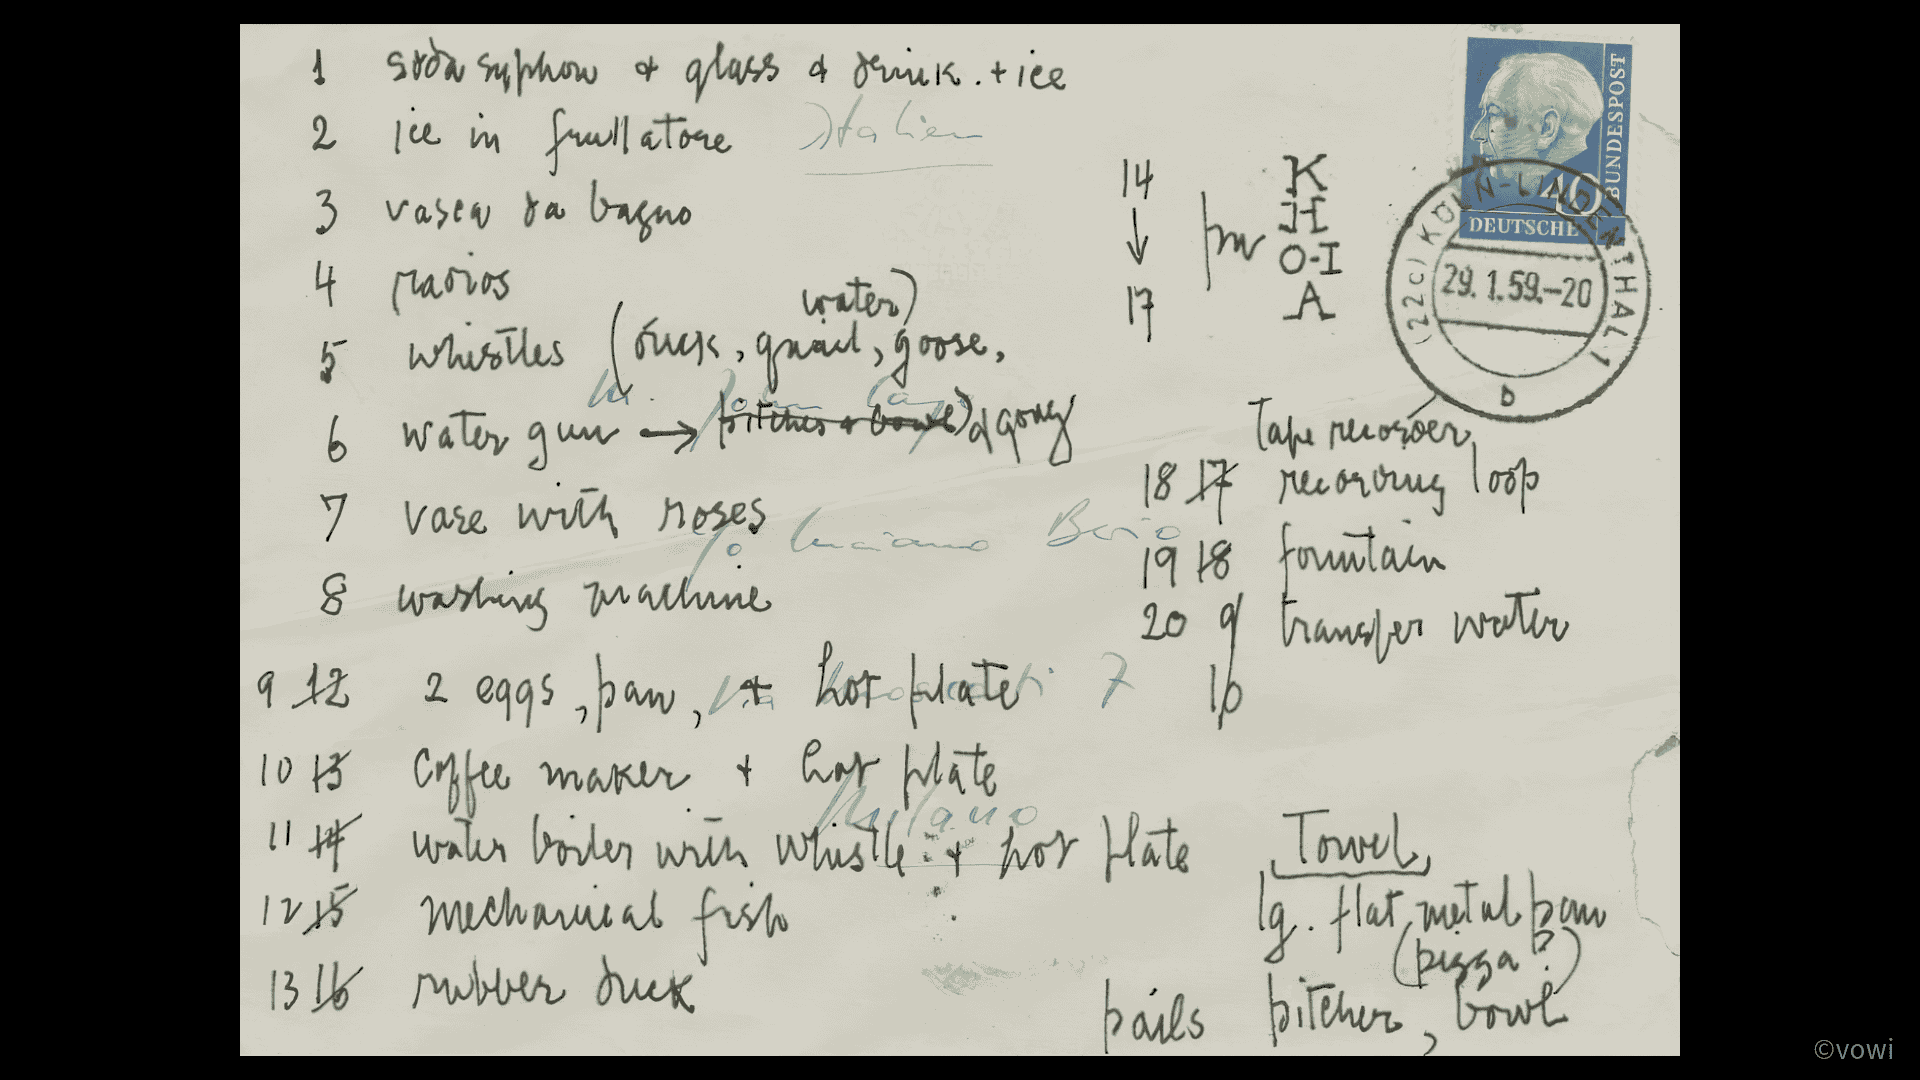 1 soda syphon + glass + drink. + ice
2 ice in frullatore
Italien
3 vasca da bagno
4 radios
water)
5 whistles (duck, quail, goose,
6 water gun → pitcher + bowl) + gong
7 vase with roses
8 washing machine
9 12 2 eggs, pan, + hot plate
10 13 coffee maker + hot plate
11 14 water boiler with whistle + hot plate
12 15 mechanical fish
13 16 rubber duck
M. John Cage
c/o Luciano Berio
Via 7
Milano
14 K
↓ H
O-I
17 A
Tape recorder
18 17 recording loop
19 18 fountain
20 9 transfer water
10
Towel
lg. flat metal pan
(pizza?)
pails pitcher, bowl
BUNDESPOST
40
DEUTSCHE
(22c) KÖLN-LINDENTHAL 1
29. 1. 59.–20
b
©vowi